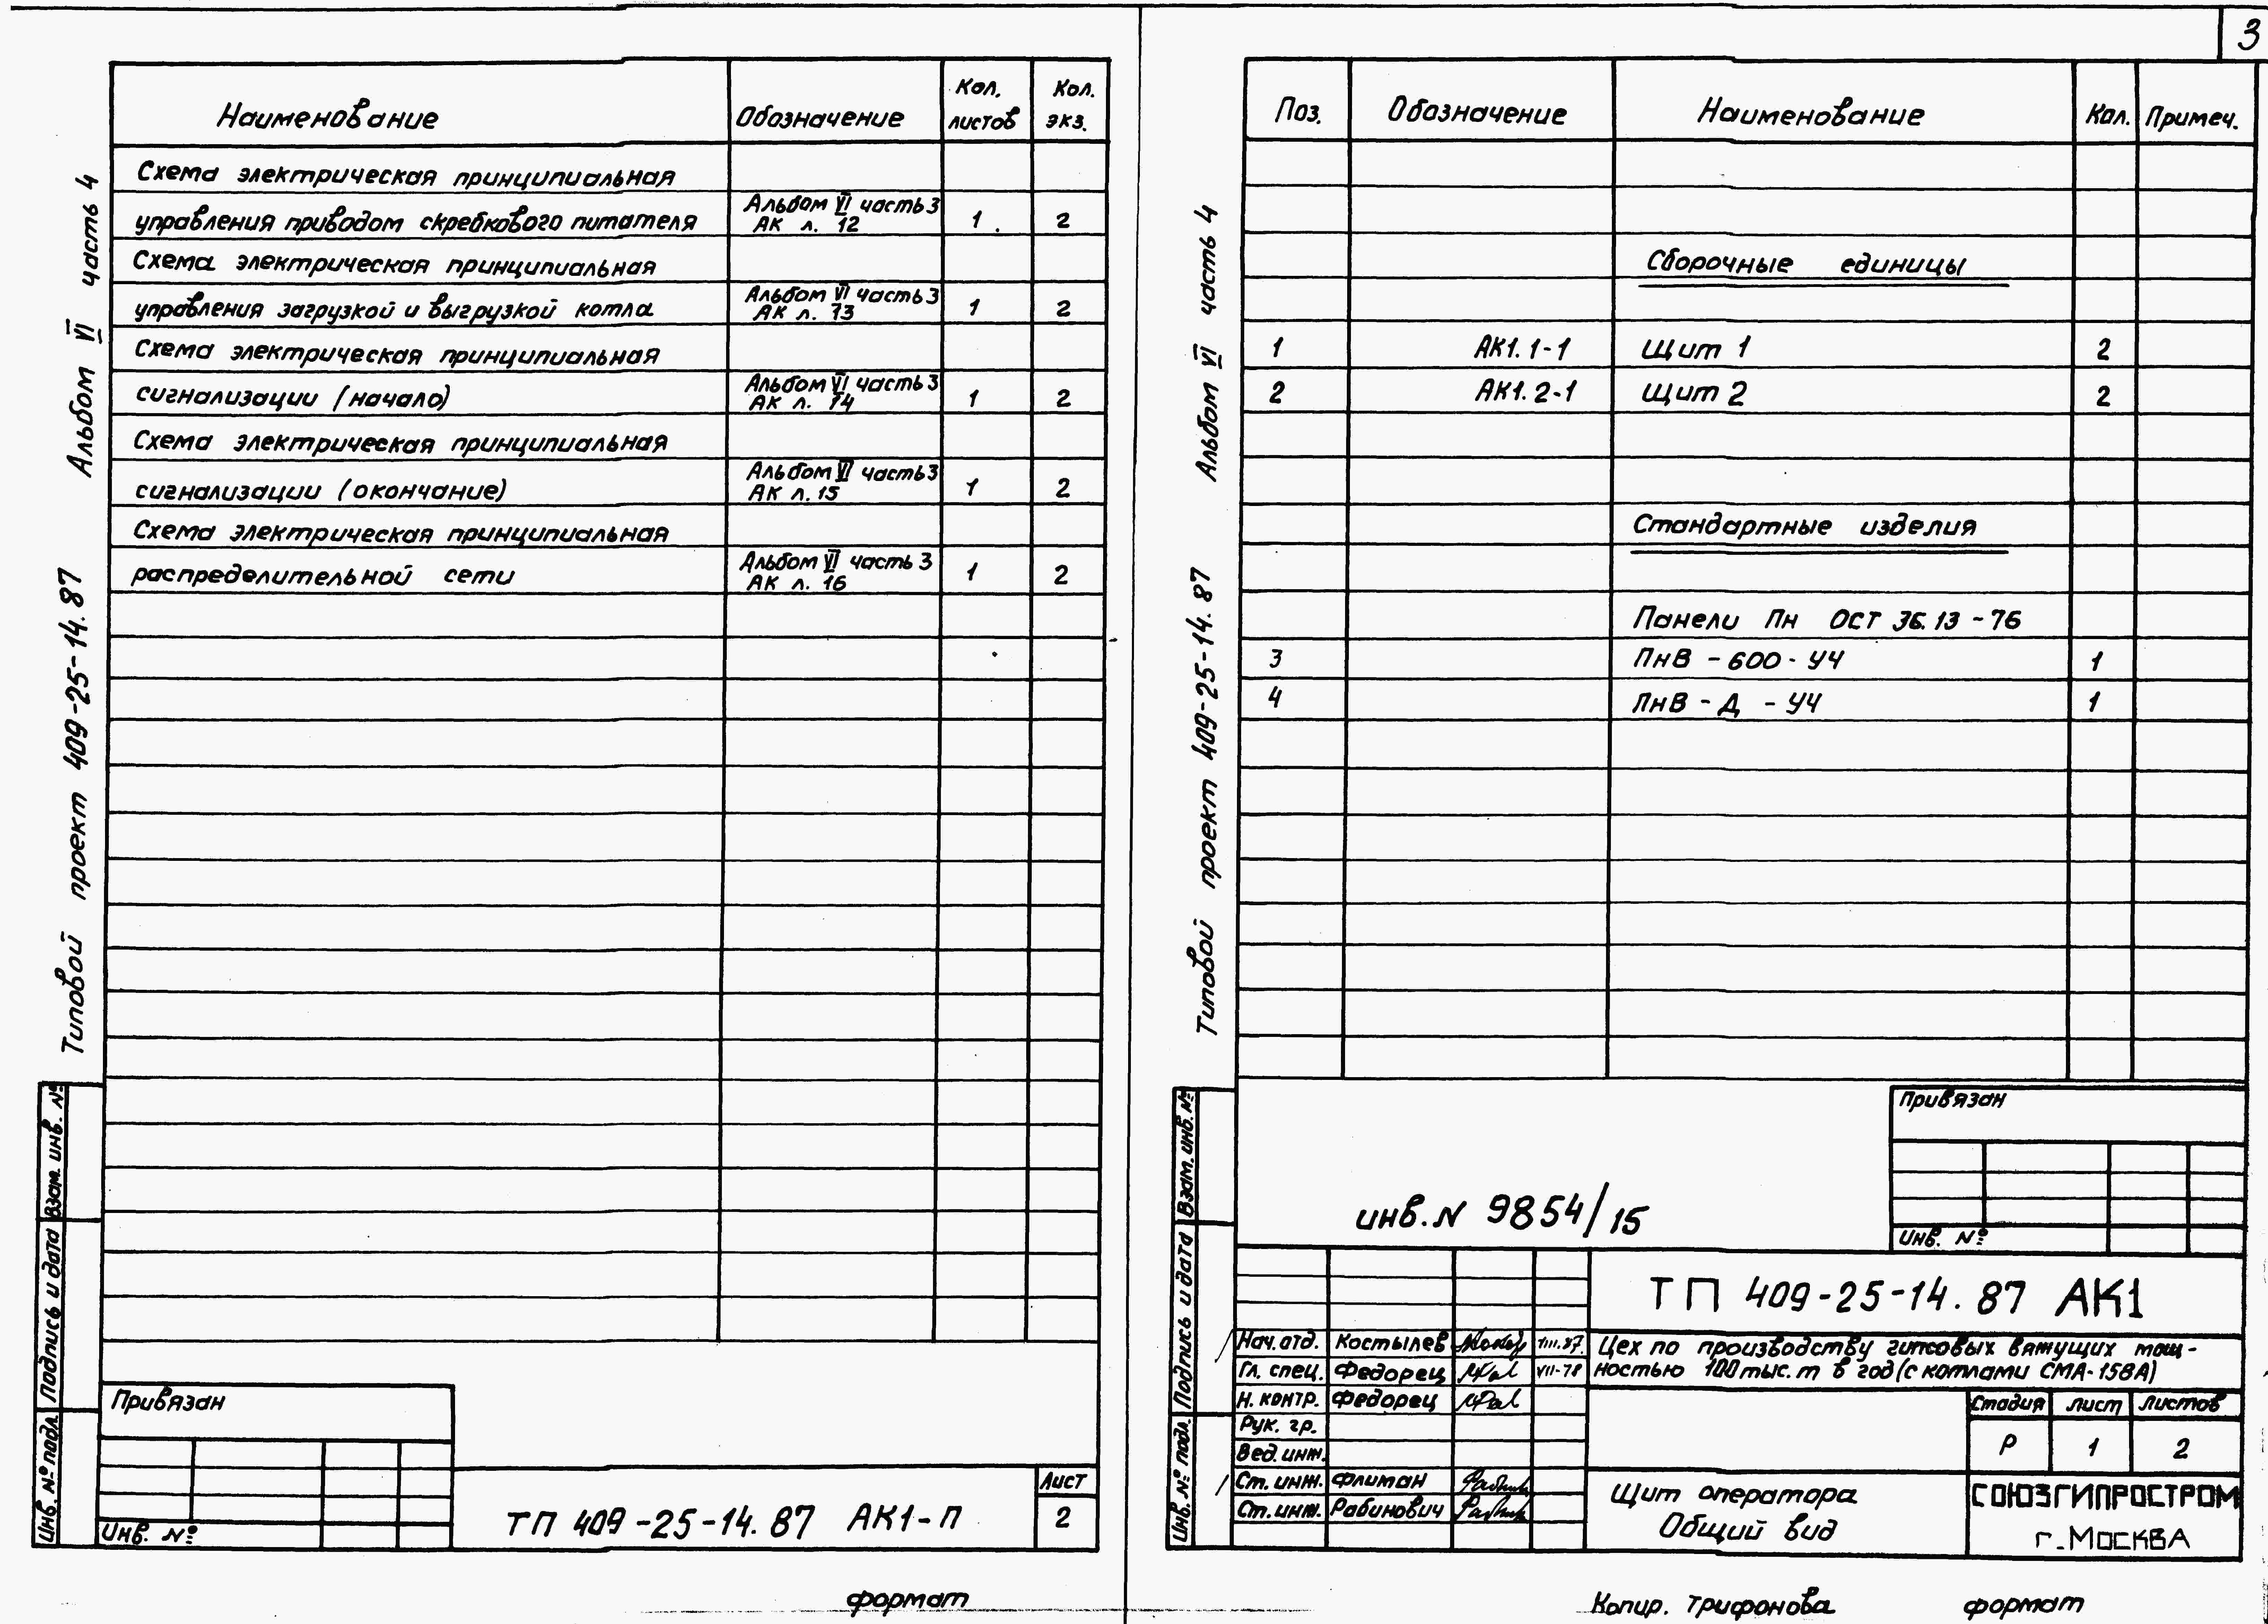 3
Типовой проект 409-25-14.87 Альбом VI часть 4
Наименование Обозначение Кол. листов Кол. экз.
Схема электрическая принципиальная
управления приводом скребкового питателя Альбом VI часть 3 АК л. 12 1 2
Схема электрическая принципиальная
управления загрузкой и выгрузкой котла Альбом VI часть 3 АК л. 13 1 2
Схема электрическая принципиальная
сигнализации (начало) Альбом VI часть 3 АК л. 14 1 2
Схема электрическая принципиальная
сигнализации (окончание) Альбом VI часть 3 АК л. 15 1 2
Схема электрическая принципиальная
распределительной сети Альбом VI часть 3 АК л. 16 1 2
Взам. инв. №
Подпись и дата
Инв. № подл.
Привязан
Инв. №
ТП 409-25-14.87 АК1-П
Лист
2
формат
Типовой проект 409-25-14.87 Альбом VI часть 4
Поз. Обозначение Наименование Кол. Примеч.
Сборочные единицы
1 АК1.1-1 Щит 1 2
2 АК1.2-1 Щит 2 2
Стандартные изделия
Панели Пн ОСТ 36.13-76
3 ПнВ-600-У4 1
4 ПнВ-Д-У4 1
Взам. инв. №
Подпись и дата
Инв. № подл.
Привязан
Инв. №
инв. N 9854/15
ТП 409-25-14.87 АК1
Нач. отд. Костылев VIII.87.
Гл. спец. Федорец VII-78
Н. контр. Федорец
Рук. гр.
Вед. инж.
Ст. инж. Флитан
Ст. инж. Рабинович
Цех по производству гипсовых вяжущих мощ-
ностью 100 тыс. т в год (с котлами СМА-158А)
Стадия Лист Листов
Р 1 2
Щит оператора
Общий вид
СОЮЗГИПРОСТРОМ
г. Москва
Копир. Трифонова формат